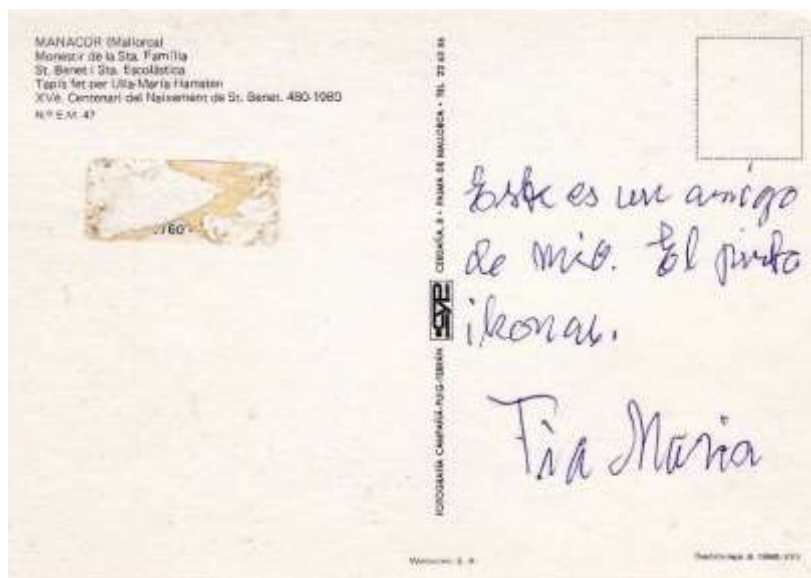 MANACOR (Mallorca)
Monestir de la Sta. Família
St. Benet i Sta. Escolàstica
Tapís fet per Ulla-Maria
XVè. Centenari del Naixement de St. Benet. 480-1980
N.º E.M. 47
760
FOTOGRAFÍA CAMPAÑÁ-PUIG-FERRÁN
PALMA DE MALLORCA - TEL.
Este es un amigo
de mio. El pinta
ikonas.
Tia Maria